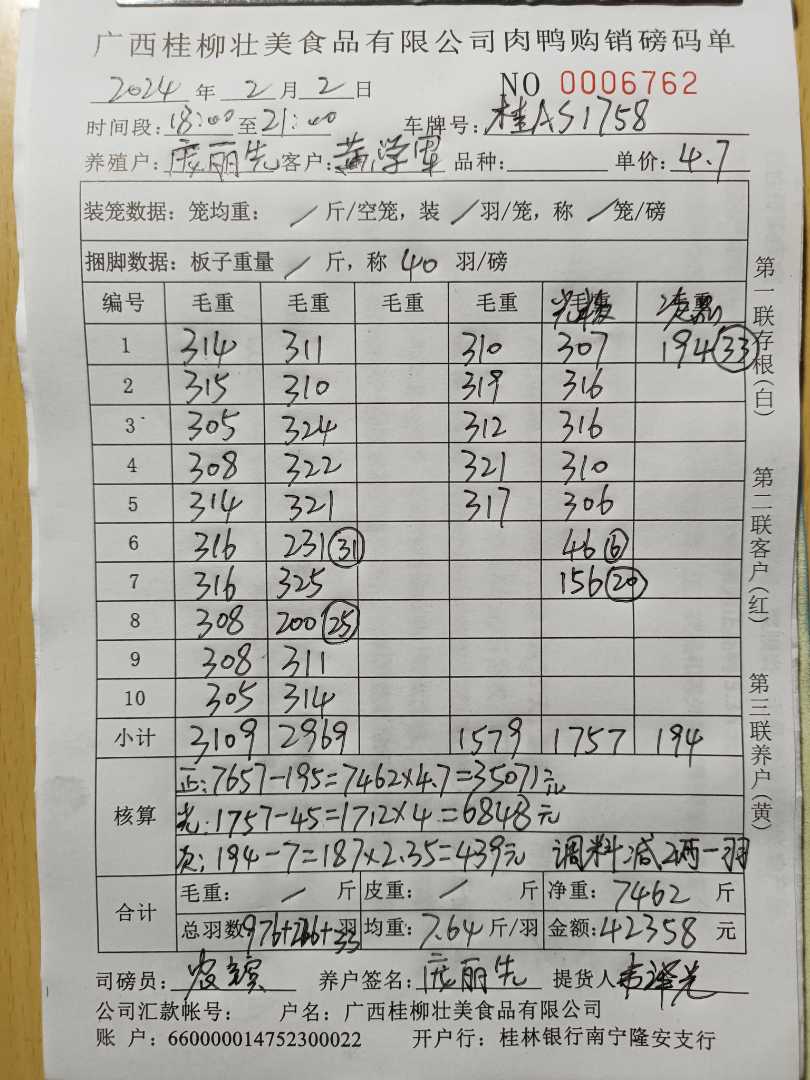 广西桂柳壮美食品有限公司肉鸭购销磅码单
2024 年 2 月 2 日 NO 0006762
时间段: 18:00 至 21:00 车牌号: 桂AS1758
养殖户: 庞丽先 客户: 黄泽军 品种: 单价: 4.7
装笼数据: 笼均重: / 斤/空笼, 装 / 羽/笼, 称 / 笼/磅
捆脚数据: 板子重量 / 斤, 称 40 羽/磅
编号 毛重 毛重 毛重 毛重 毛重 毛重
1 314 311 310 307 194 33
2 315 310 319 316
3 305 324 312 316
4 308 322 321 310
5 314 321 317 306
6 316 231 31 46 6
7 316 325 156 20
8 308 200 25
9 308 311
10 305 314
小计 3109 2969 1579 1757 194
核算 正: 7657-195=7462×4.7=35071元
光: 1757-45=1712×4=6848元
次: 194-7=187×2.35=439元 调料减2两一羽
合计 毛重: / 斤 皮重: / 斤 净重: 7462 斤
总羽数 976+226+33 羽 均重: 7.64 斤/羽 金额: 42358 元
司磅员: 养户签名: 庞丽先 提货人
公司汇款帐号: 户名: 广西桂柳壮美食品有限公司
账 户: 660000014752300022 开户行: 桂林银行南宁隆安支行
第一联存根(白) 第二联客户(红) 第三联养户(黄)